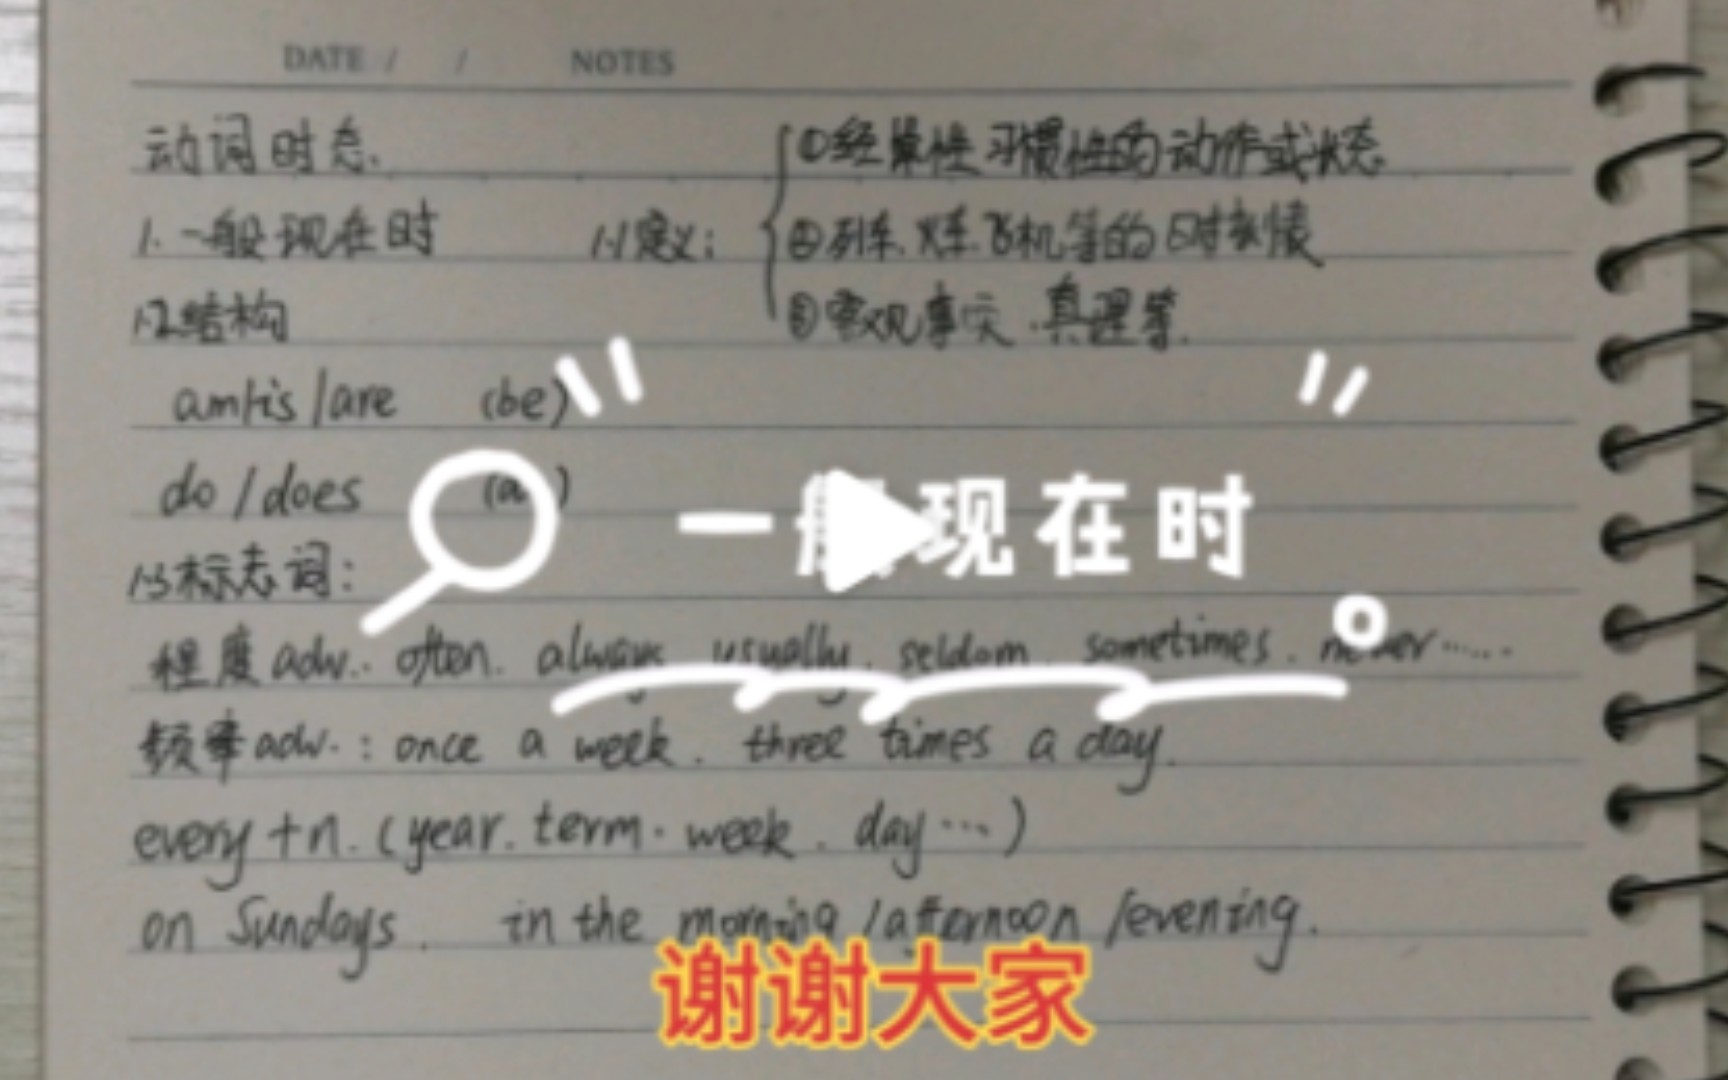 DATE / / NOTES
动词时态.
①经常性习惯性的动作或状态
1.一般现在时 1.1定义:
②列车.火车.飞机等的时刻
③客观事实.真理等.
1.2结构
am/is/are (be)
do/does
一般现在时
1.3标志词:
程度adv.. often. always usually. seldom sometimes. never……
频率adv.: once a week. three times a day.
every+n.(year.term.week.day…)
on Sundays. in the morning/afternoon/evening.
谢谢大家